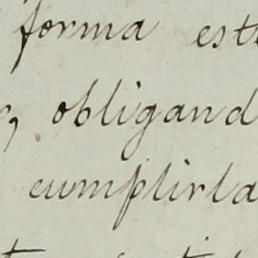 forma est
obligand
cumplirla